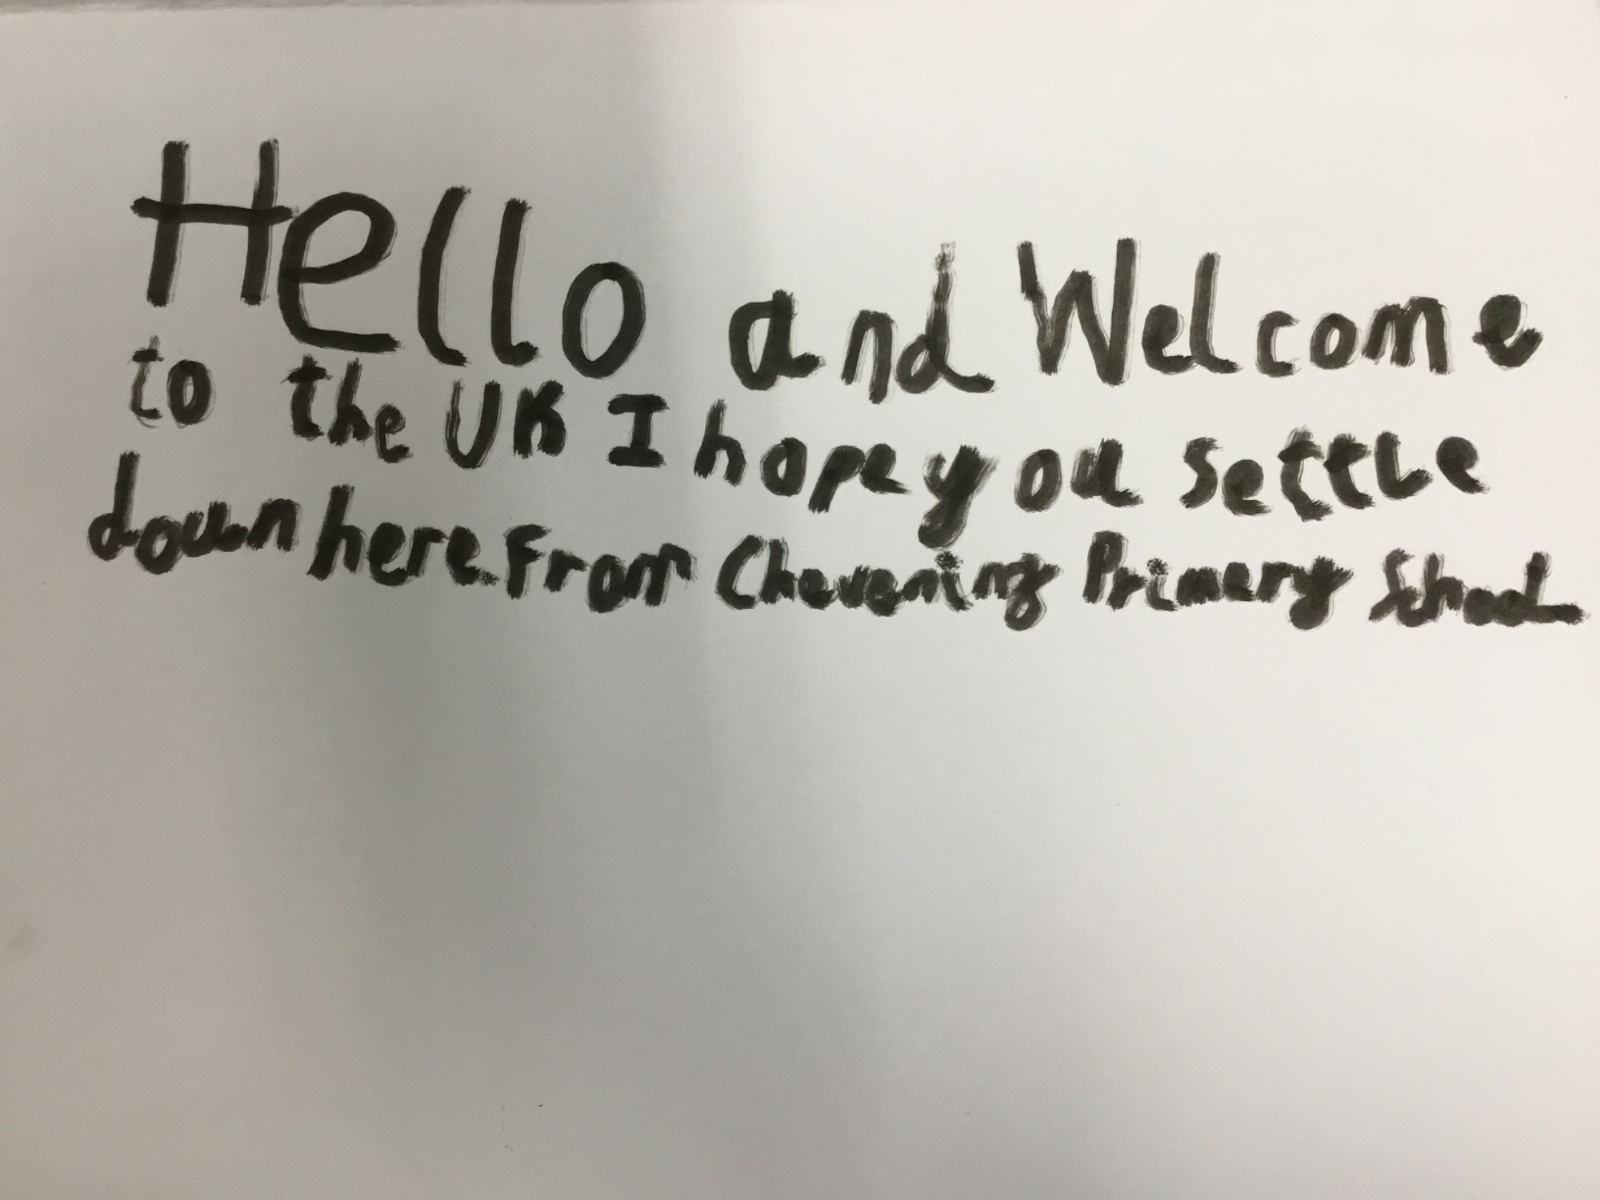 Hello and Welcome
to the UK I hope you settle
down here. From Chevening Primary School